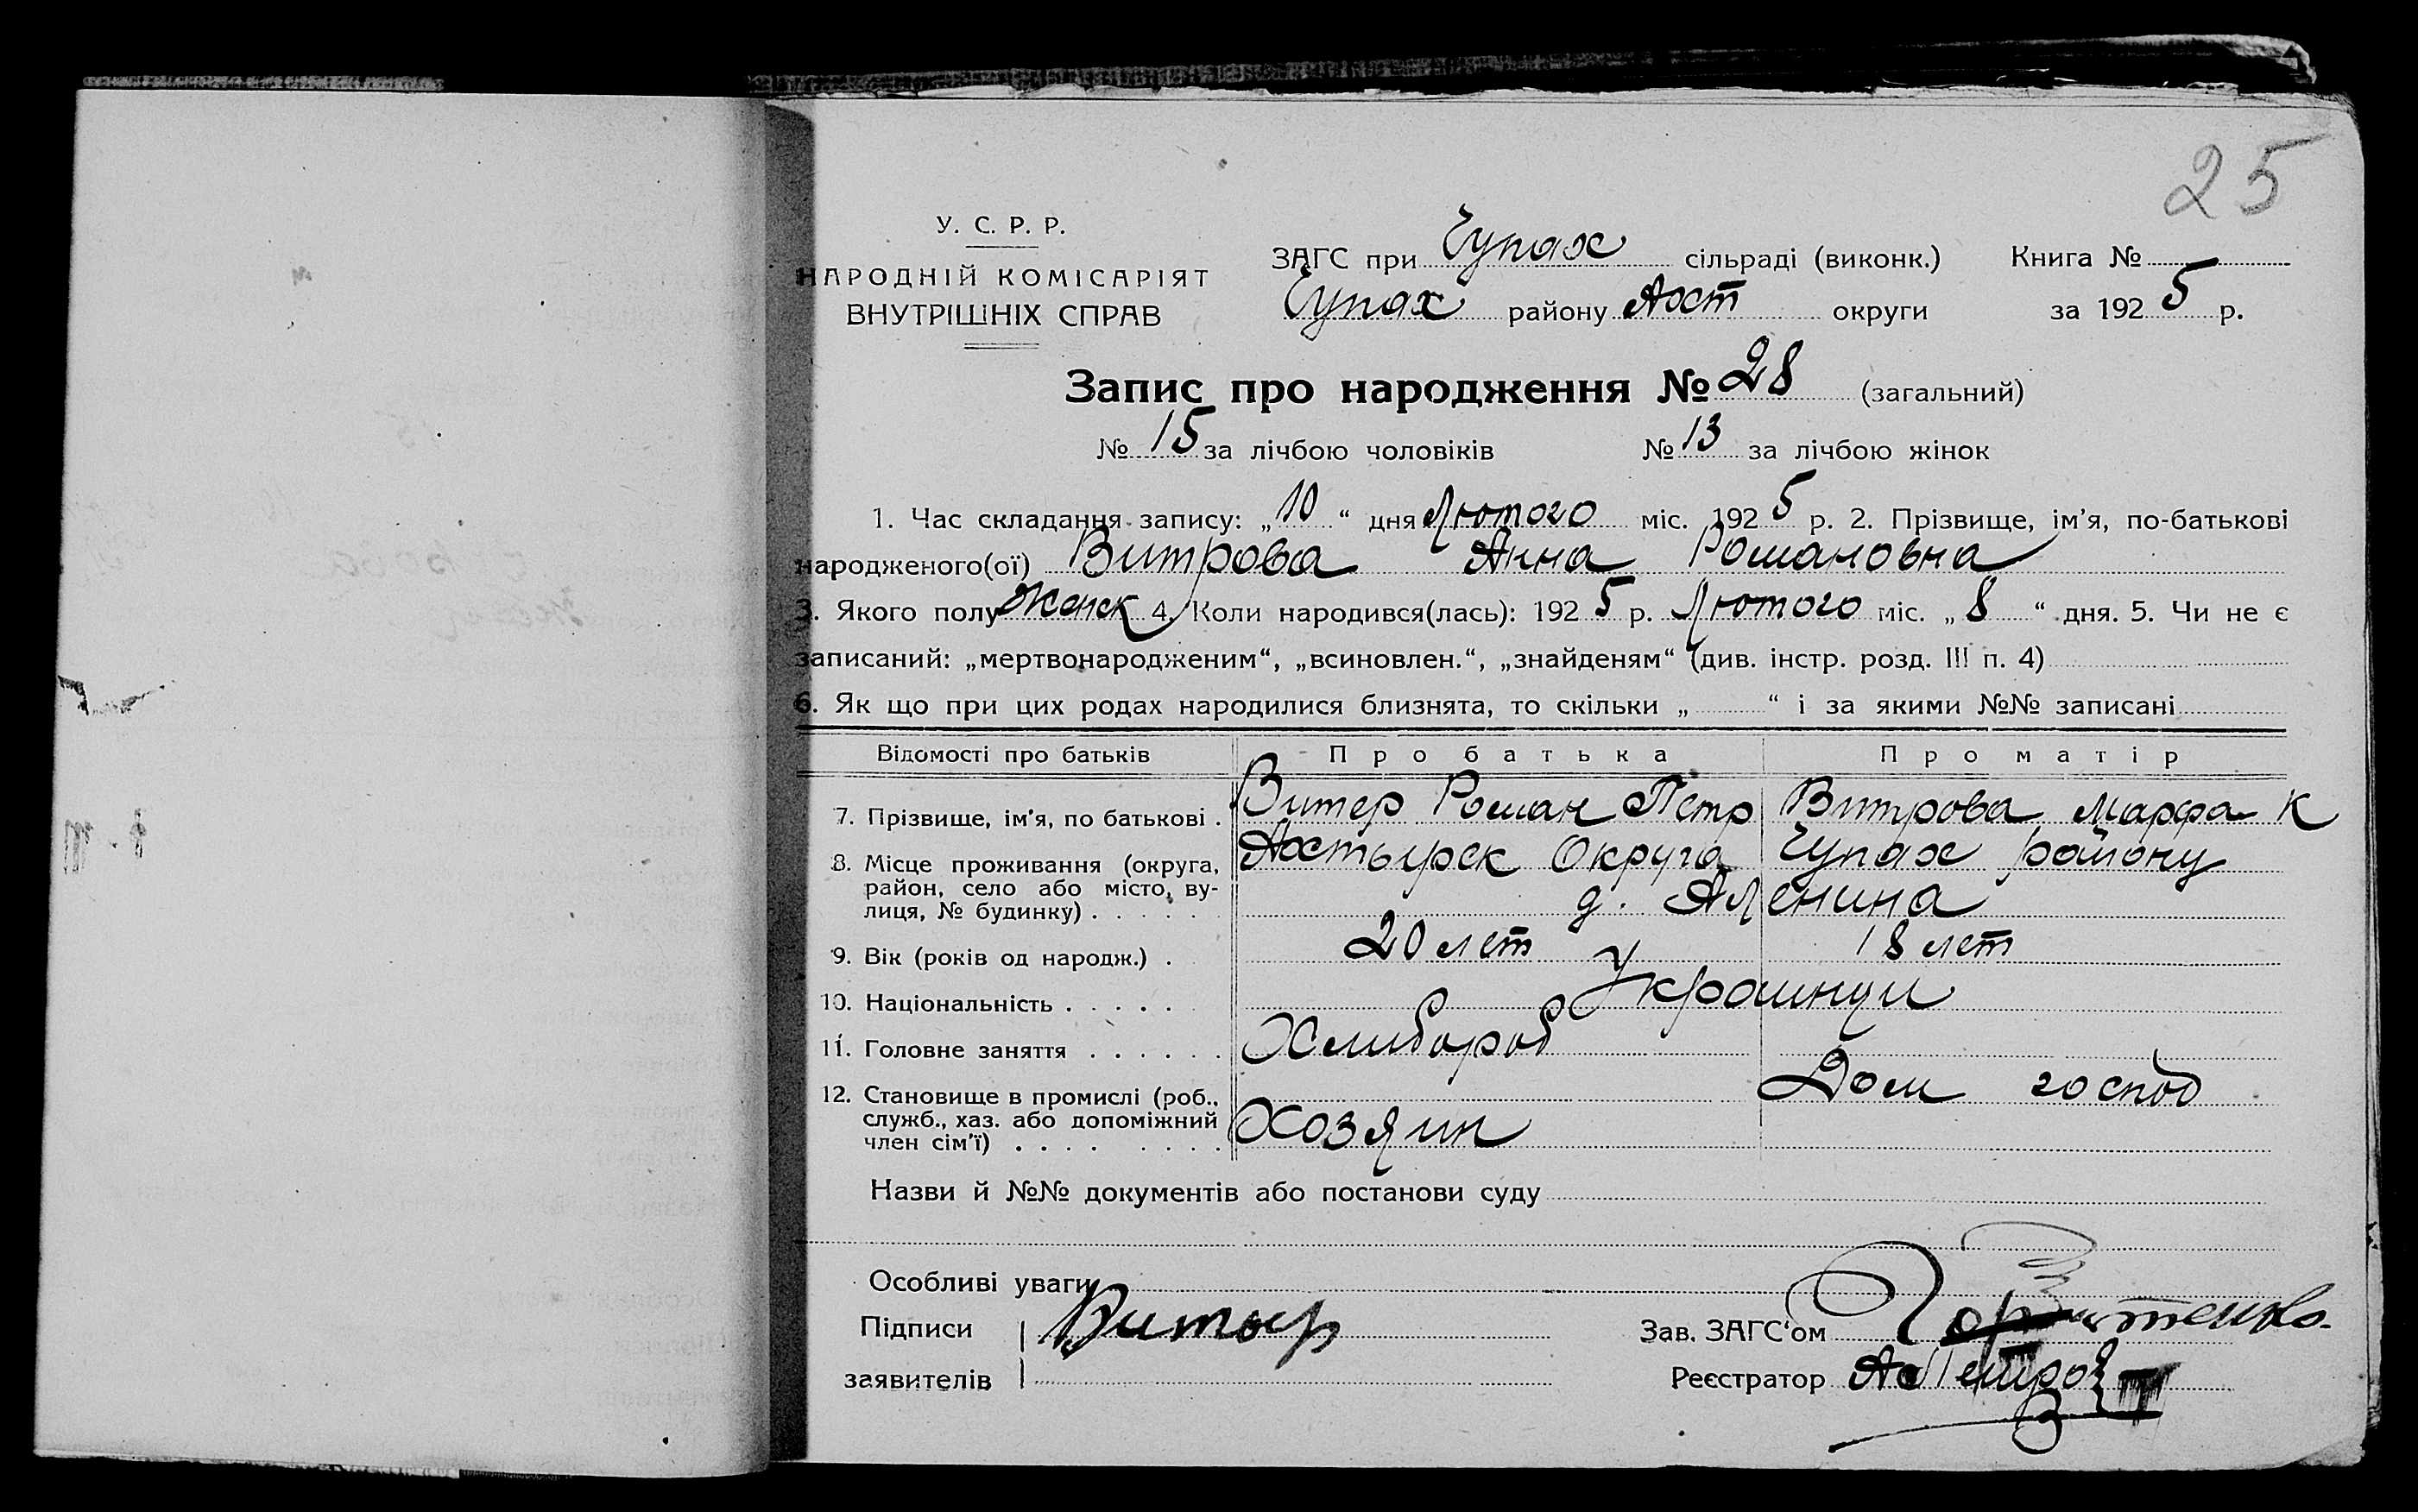 25
У. С. Р. Р.
НАРОДНІЙ КОМІСАРІЯТ
ВНУТРІШНІХ СПРАВ
ЗАГС при Чупах сільраді (виконк.) Книга №
Чупах району Ахт округи за 1925 р.
Запис про народження № 28 (загальний)
№ 15 за лічбою чоловіків № 13 за лічбою жінок
1. Час складання запису: „10“ дня Лютого міс. 1925 р. 2. Прізвище, ім’я, по-батькові
народженого(ої) Витрова Анна Романовна
3. Якого полу Женск 4. Коли народився(лась): 1925 р. Лютого міс. „8“ дня. 5. Чи не є
записаний: „мертвонародженим“, „всиновлен.“, „знайденям“ (див. інстр. розд. III п. 4)
6. Як що при цих родах народилися близнята, то скільки „ “ і за якими №№ записані
Відомості про батьків Про батька Про матір
7. Прізвище, ім’я, по батькові . Витер Роман Петр Витрова Марфа К
8. Місце проживання (округа, Ахтырск Округа Чупах району
район, село або місто, ву-
лиця, № будинку) . . . . . д. Аленина
9. Вік (років од народж.) . 20 лет 18 лет
10. Національність . . . . . Украинци
11. Головне заняття . . . . . . Хлибороб
Дом господ
12. Становище в промислі (роб.,
служб., хаз. або допоміжний
член сім’ї) . . . . . . . . Хозяин
Назви й №№ документів або постанови суду
Особливі уваги
Підписи Витыр
заявителів
Зав. ЗАГС‘ом
Реєстратор